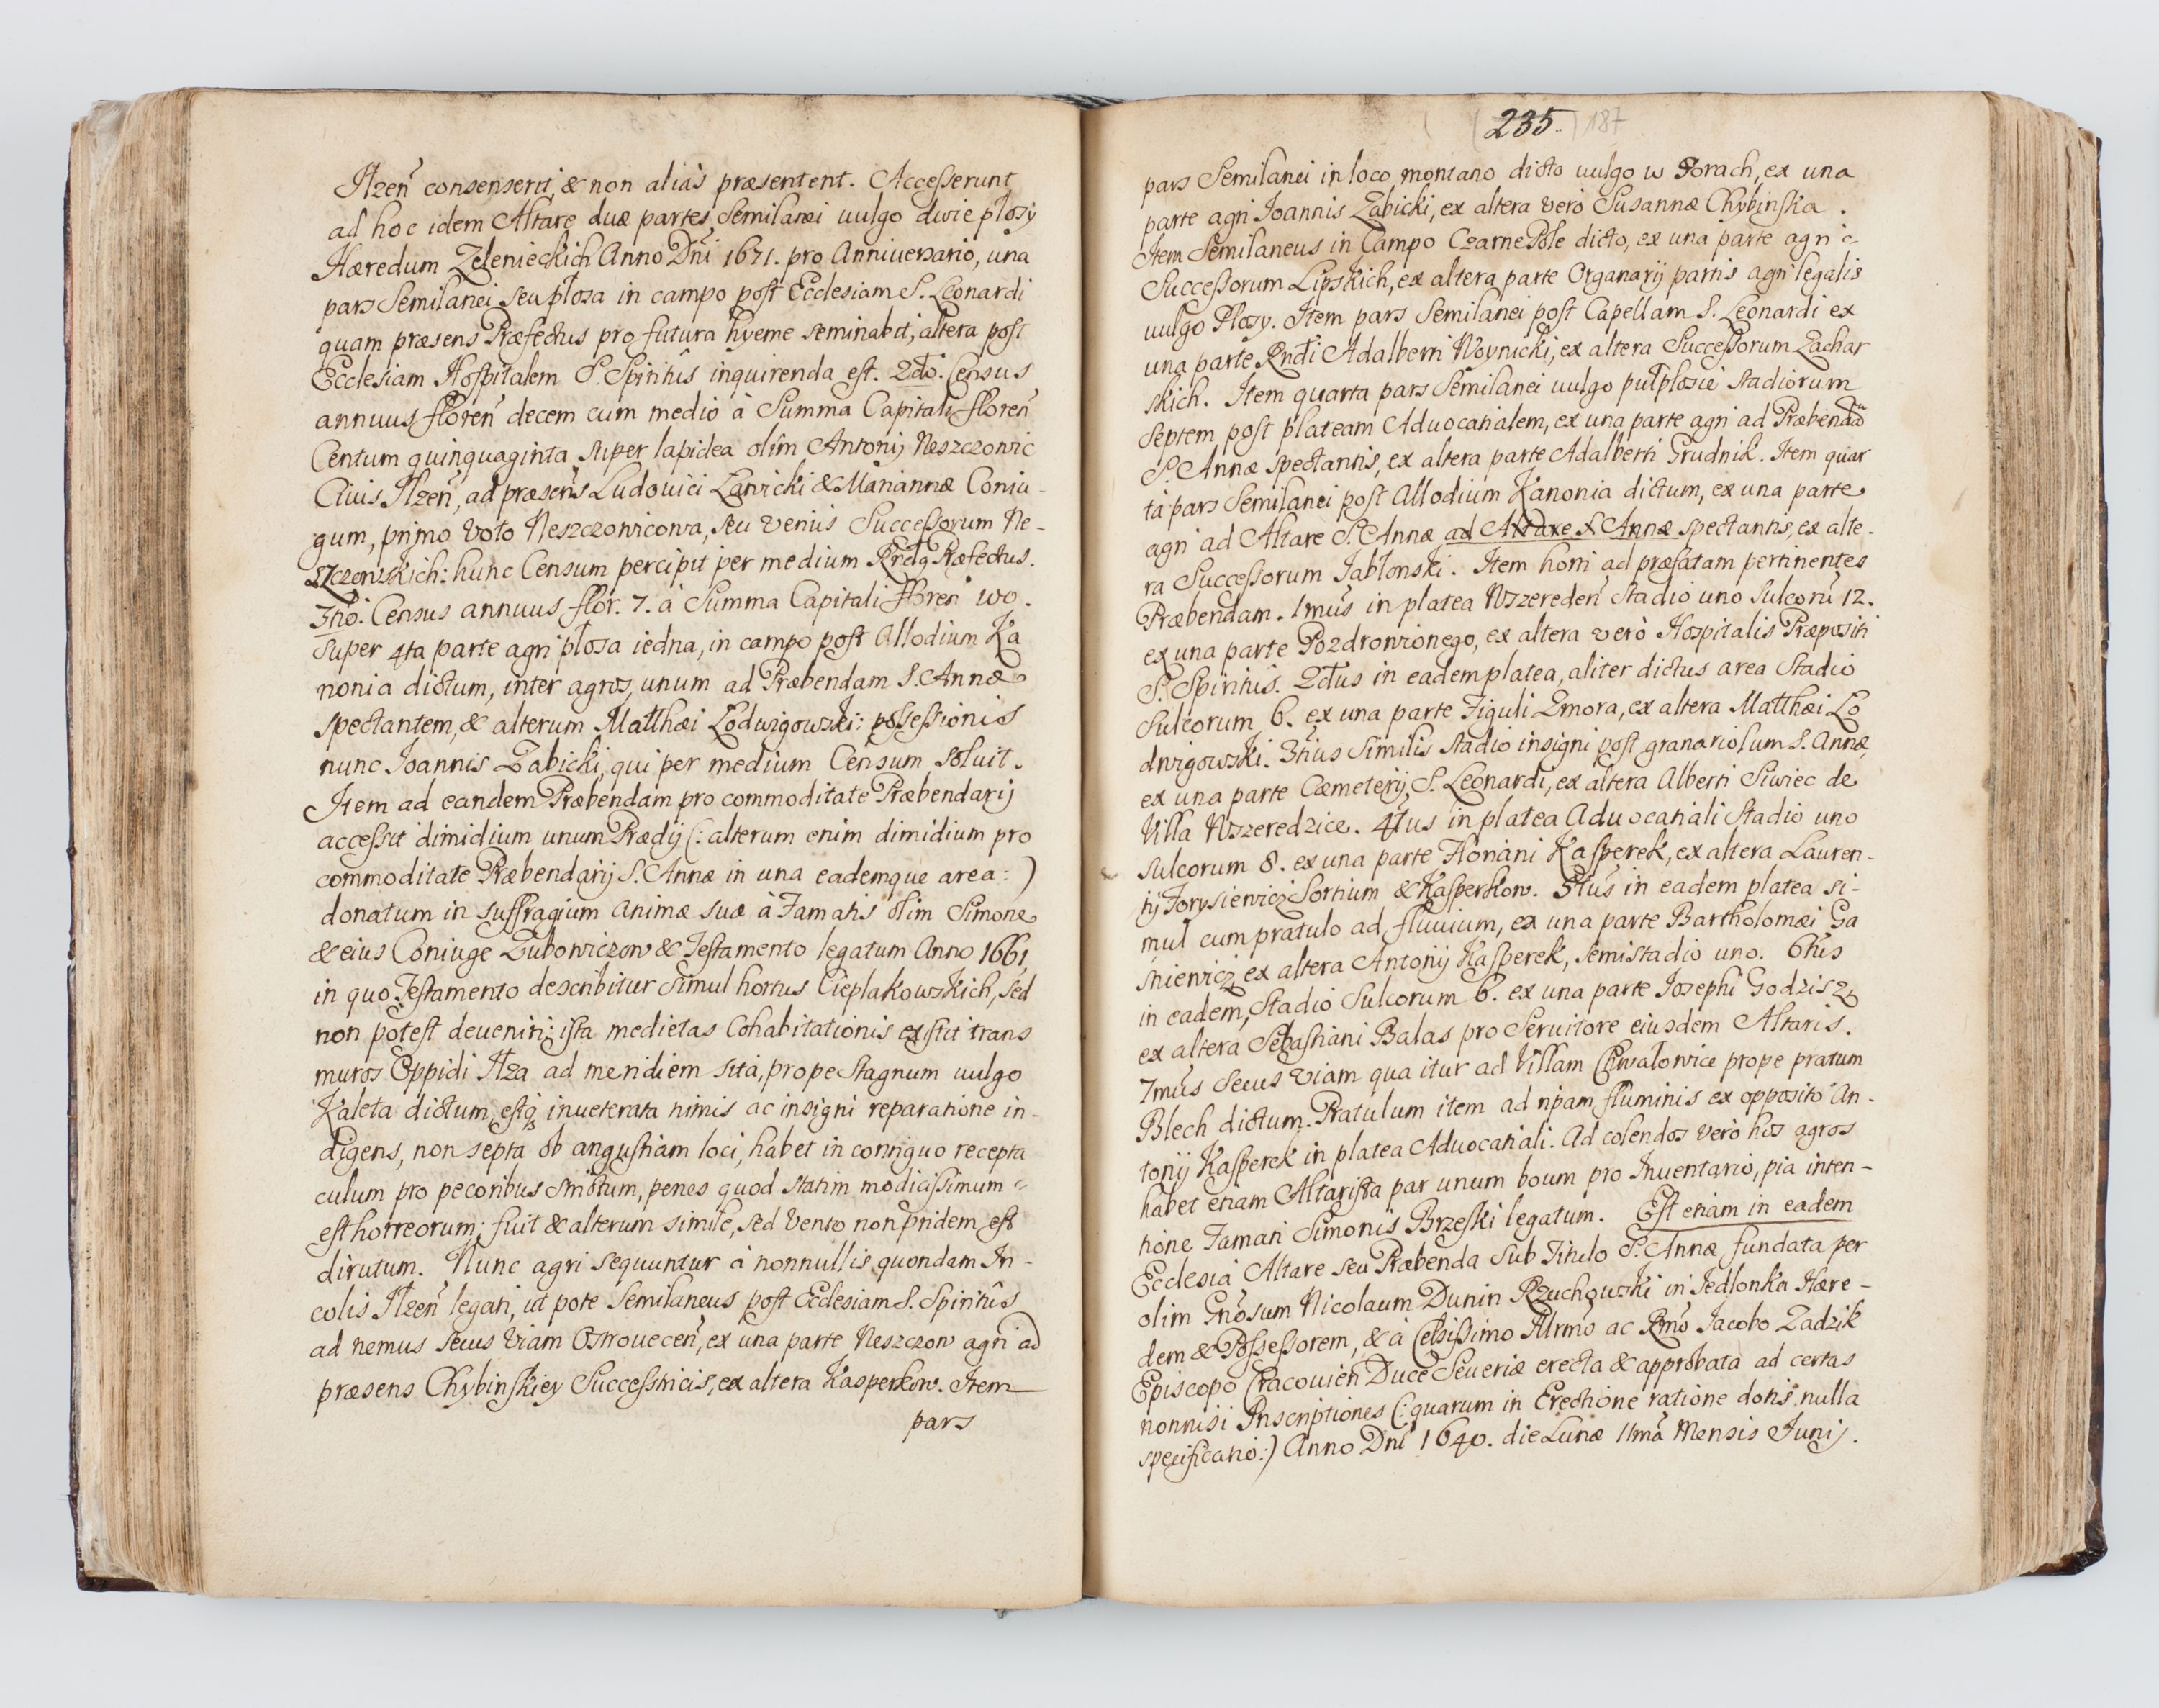 Ilzeñ consenserit, & non aliàs præsentent. Accesserunt
ad hoc idem Altare duæ partes Semilanei uulgo dwie płosy
Hæredum Zelenieckich Anno Dñi 1671. pro Anniuersario, una
pars Semilanei seu płosa in campo post Ecclesiam S. Leonardi
quam præsens Præfectus pro futura hyeme seminabit, altera post
Ecclesiam Hospitalem S. Spiritûs inquirenda est. 2do. Census
annuus floreñ decem cum medio à Summa Capitali floreñ
Centum quinquaginta super lapidea olim Antonij Neszczowic
Ciuis Ilzeñ, ad præsens Ludouici Ławicki & Mariannæ Coniu-
gum, primo voto Neszczowicowa, seu verius Successorum Ne-
szczowskich: hunc Censum percipit per medium Præfectus.
3tio. Census annuus flor. 7. à Summa Capitali floreñ 100.
super 4ta parte agri płosa iedna, in campo post Allodium Ka
nonia dictum, inter agros, unum ad Præbendam S. Annæ
spectantem, & alterum Matthæi Lodwigowski: possessionis
nunc Joannis Zabicki, qui per medium Censum soluit.
Item ad eandem Præbendam pro commoditate Præbendarij
accessit dimidium unum Prædij (: alterum enim dimidium pro
commoditate Præbendarij S. Annæ in una eademque area:)
donatum in suffragium Animæ suæ à Famatis olim Simone
& eius Coniuge Zubowiczow & Testamento legatum Anno 1661
in quo Testamento describitur simul hortus Cieplakowskich, sed
non potest deueniri; ista medietas Cohabitationis existit trans
muros Oppidi Ilza ad meridiem sita, prope Stagnum uulgo
Kaleta dictum, estq inueterata nimis ac insigni reparatione in-
digens, non septa ob angustiam loci, habet in contiguo recepta
culum pro pecoribus strictum, penes quod statim modicissimum
est horreorum; fuit & alterum simile, sed vento non pridem est
dirutum. Nunc agri sequuntur à nonnullis quondam In-
colis Ilzeñ legati, ut pote Semilaneus post Ecclesiam S. Spiritûs
ad nemus secus viam Ostroueceñ, ex una parte Neszczow agri ad
præsens Chybinskiey Successricis, ex altera Kasperkow. Item
pars
235. 187
pars Semilanei in loco montano dicto uulgo w Gorach, ex una
parte agri Joannis Zabicki, ex altera verò Susannæ Chybinska.
Item Semilaneus in Campo Czarne Pole dicto, ex una parte agri
Successorum Lipskich, ex altera parte Organarij partis agri legalis
uulgo Płosy. Item pars Semilanei post Capellam S. Leonardi ex
una parte Rndi Adalberti Woynicki, ex altera Successorum Zachar
skich. Item quarta pars Semilanei uulgo pułpłosie stadiorum
septem post plateam Aduocatialem, ex una parte agri ad Præbendam
S. Annæ spectantis, ex altera parte Adalberti Grudnik. Item quar
ta pars Semilanei post Allodium Kanonia dictum, ex una parte
agri ad Altare S. Annæ ad Altare S. Annæ spectantis, ex alte-
ra Successorum Jabłonski. Item horti ad præfatam pertinentes
Præbendam. 1mus in platea Wszeredeñ Stadio uno Sulcorũ 12.
ex una parte Pozdrowionego, ex altera verò Hospitalis Præpositi
S. Spiritûs. 2dus in eadem platea, aliter dictus area Stadio
Sulcorum 6. ex una parte Figuli Zmora, ex altera Matthæi Lo
dwigowski. 3tius similis stadio insigni post granariolum S. Annæ,
ex una parte Cæmeterij S. Leonardi, ex altera Alberti Siwiec de
Villa Wszeredzice. 4tus in platea Aduocatiali Stadio uno
sulcorum 8. ex una parte Floriani Kasperek, ex altera Lauren-
tij Forysiewicz Sortium & Kasperkow. 5tus in eadem platea si-
mul cum pratulo ad fluuium, ex una parte Bartholomæi Ga
śniewicz ex altera Antonij Kasperek, semistadio uno. 6tus
in eadem, Stadio Sulcorum 6. ex una parte Josephi Godzisz,
ex altera Sebastiani Balas pro Seruitore eiusdem Altaris.
7mus Secus viam qua itur ad Villam Chwałowice prope pratum
Blech dictum. Pratulum item ad ripam fluminis ex opposito An-
tonij Kasperek in platea Aduocatiali. Ad colendos verò hos agros
habet etiam Altarista par unum boum pro Inuentario, pia inten-
tione Famati Simonis Brzeski legatum. Est etiam in eadem
Ecclesia Altare seu Præbenda sub Titulo S. Annæ fundata per
olim Gñosum Nicolaum Dunin Rzuchowski in Jedlonka Hære-
dem & Possessorem, & à Celsissimo Illrmo ac Rmo Jacobo Zadzik
Episcopo Cracouieñ Duce Seueriæ erecta & approbata ad certas
nonnisi Inscriptiones (: quarum in Erectione ratione dotis nulla
specificatio:) Anno Dñi 1640. die Lunæ 11ma Mensis Junij.